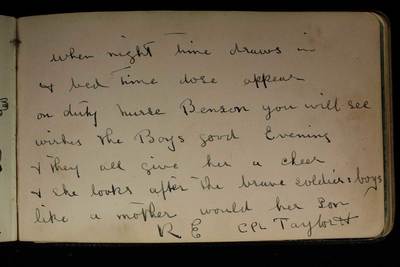 When night time draws in
& bed time dose appear
on duty Nurse Benson you will see
wishes the Boys good Evening
& they all give her a cheer
& she looks after the brave soldier boys
like a mother would her Son
R E Cpl Taylor